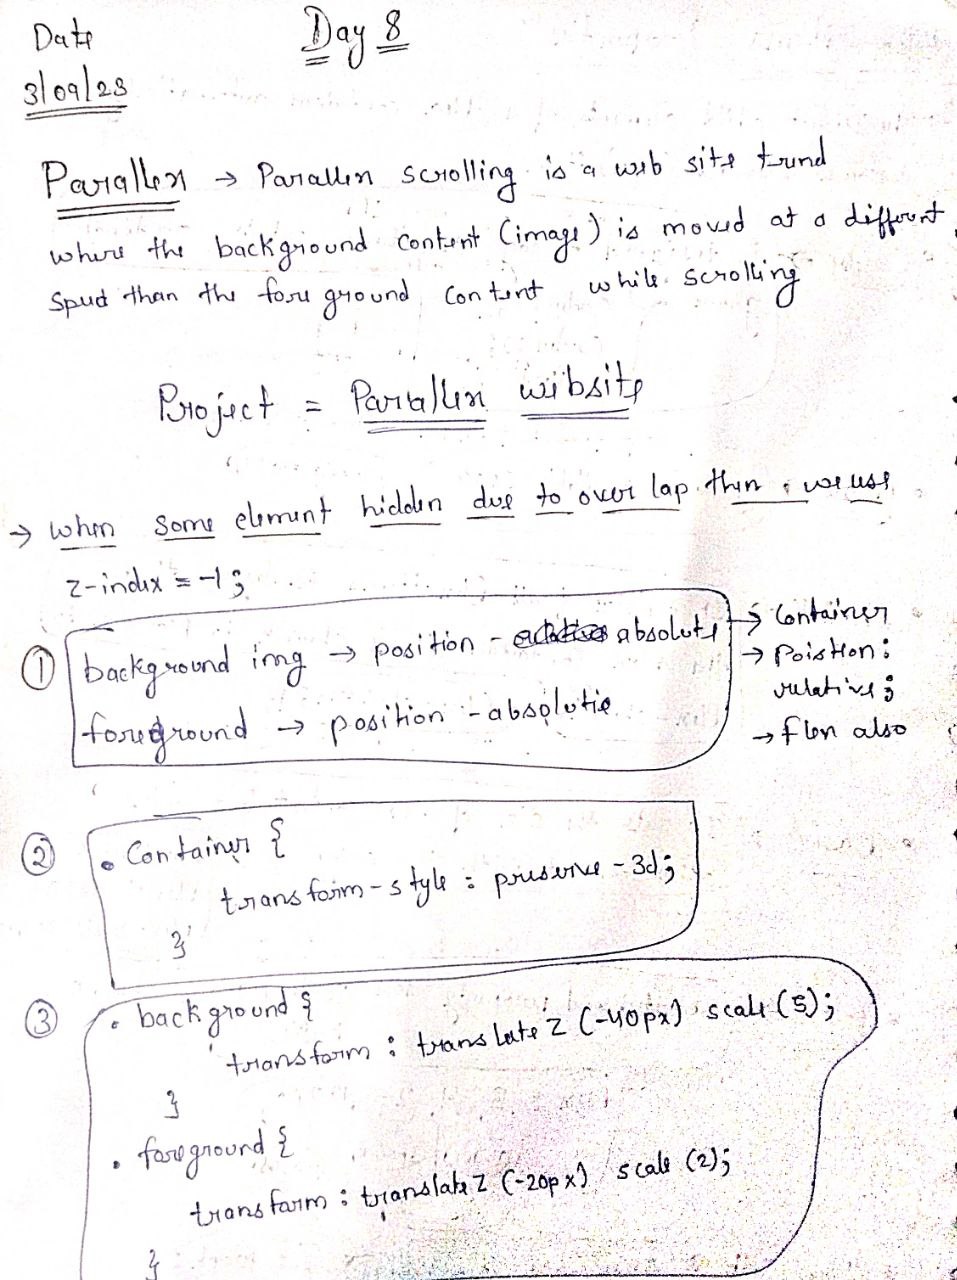 Date
Day 8
3/09/23
Parallex → Parallex scrolling is a web site trend
where the background content (image) is moved at a different
Speed than the fore ground content while scrolling
Project = Parallex website
→ when some element hidden due to over lap then we use
z-index = -1;
① background img → position - absolute
foreground → position - absolutie
→ Container
→ Poistion:
relative;
→ flex also
② . Container {
transform-style : preserve-3d;
}
③ . background {
transform : translateZ (-40px) scale (5);
}
. foreground {
transform : translateZ (-20px) scale (2);
}